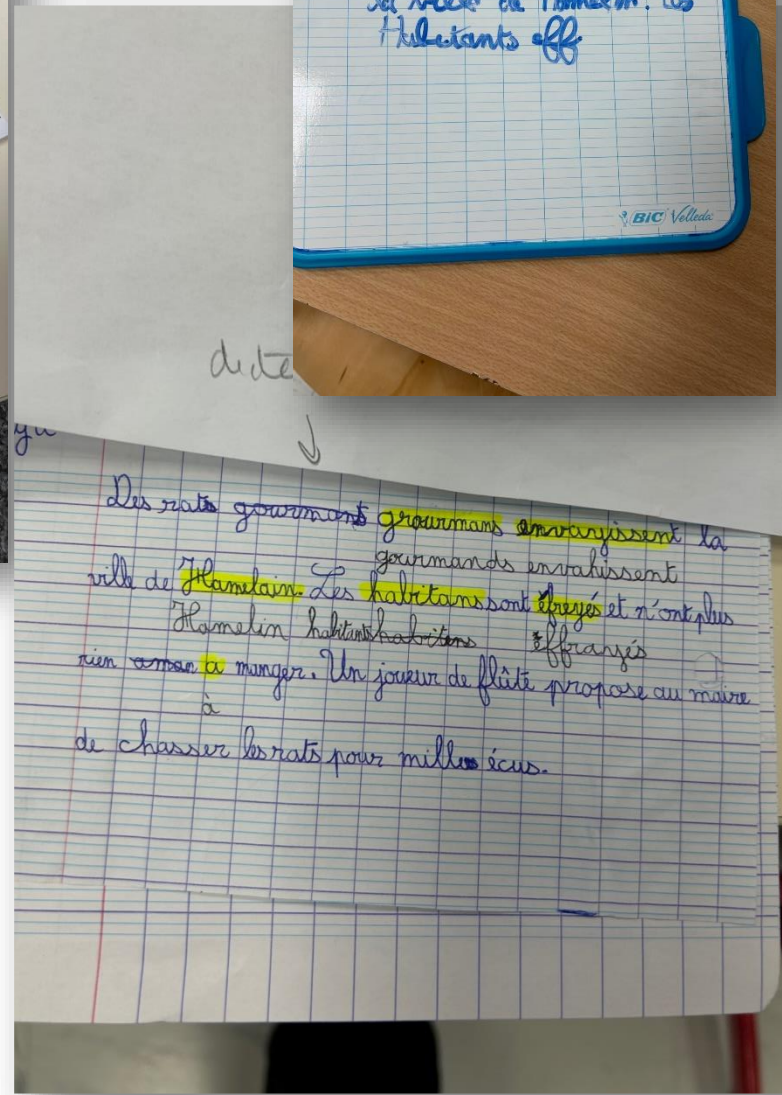 Habitants eff
BIC Velleda
dicté
Des rats gourmans grourmans envanyissent la
gourmands envahissent
ville de Hamelain. Les habitans sont éfreyés et n'ont plus
Hamelin habitants habitens effrayés
rien aman a manger. Un joueur de flûte propose au maire
à
de chasser les rats pour mille écus.